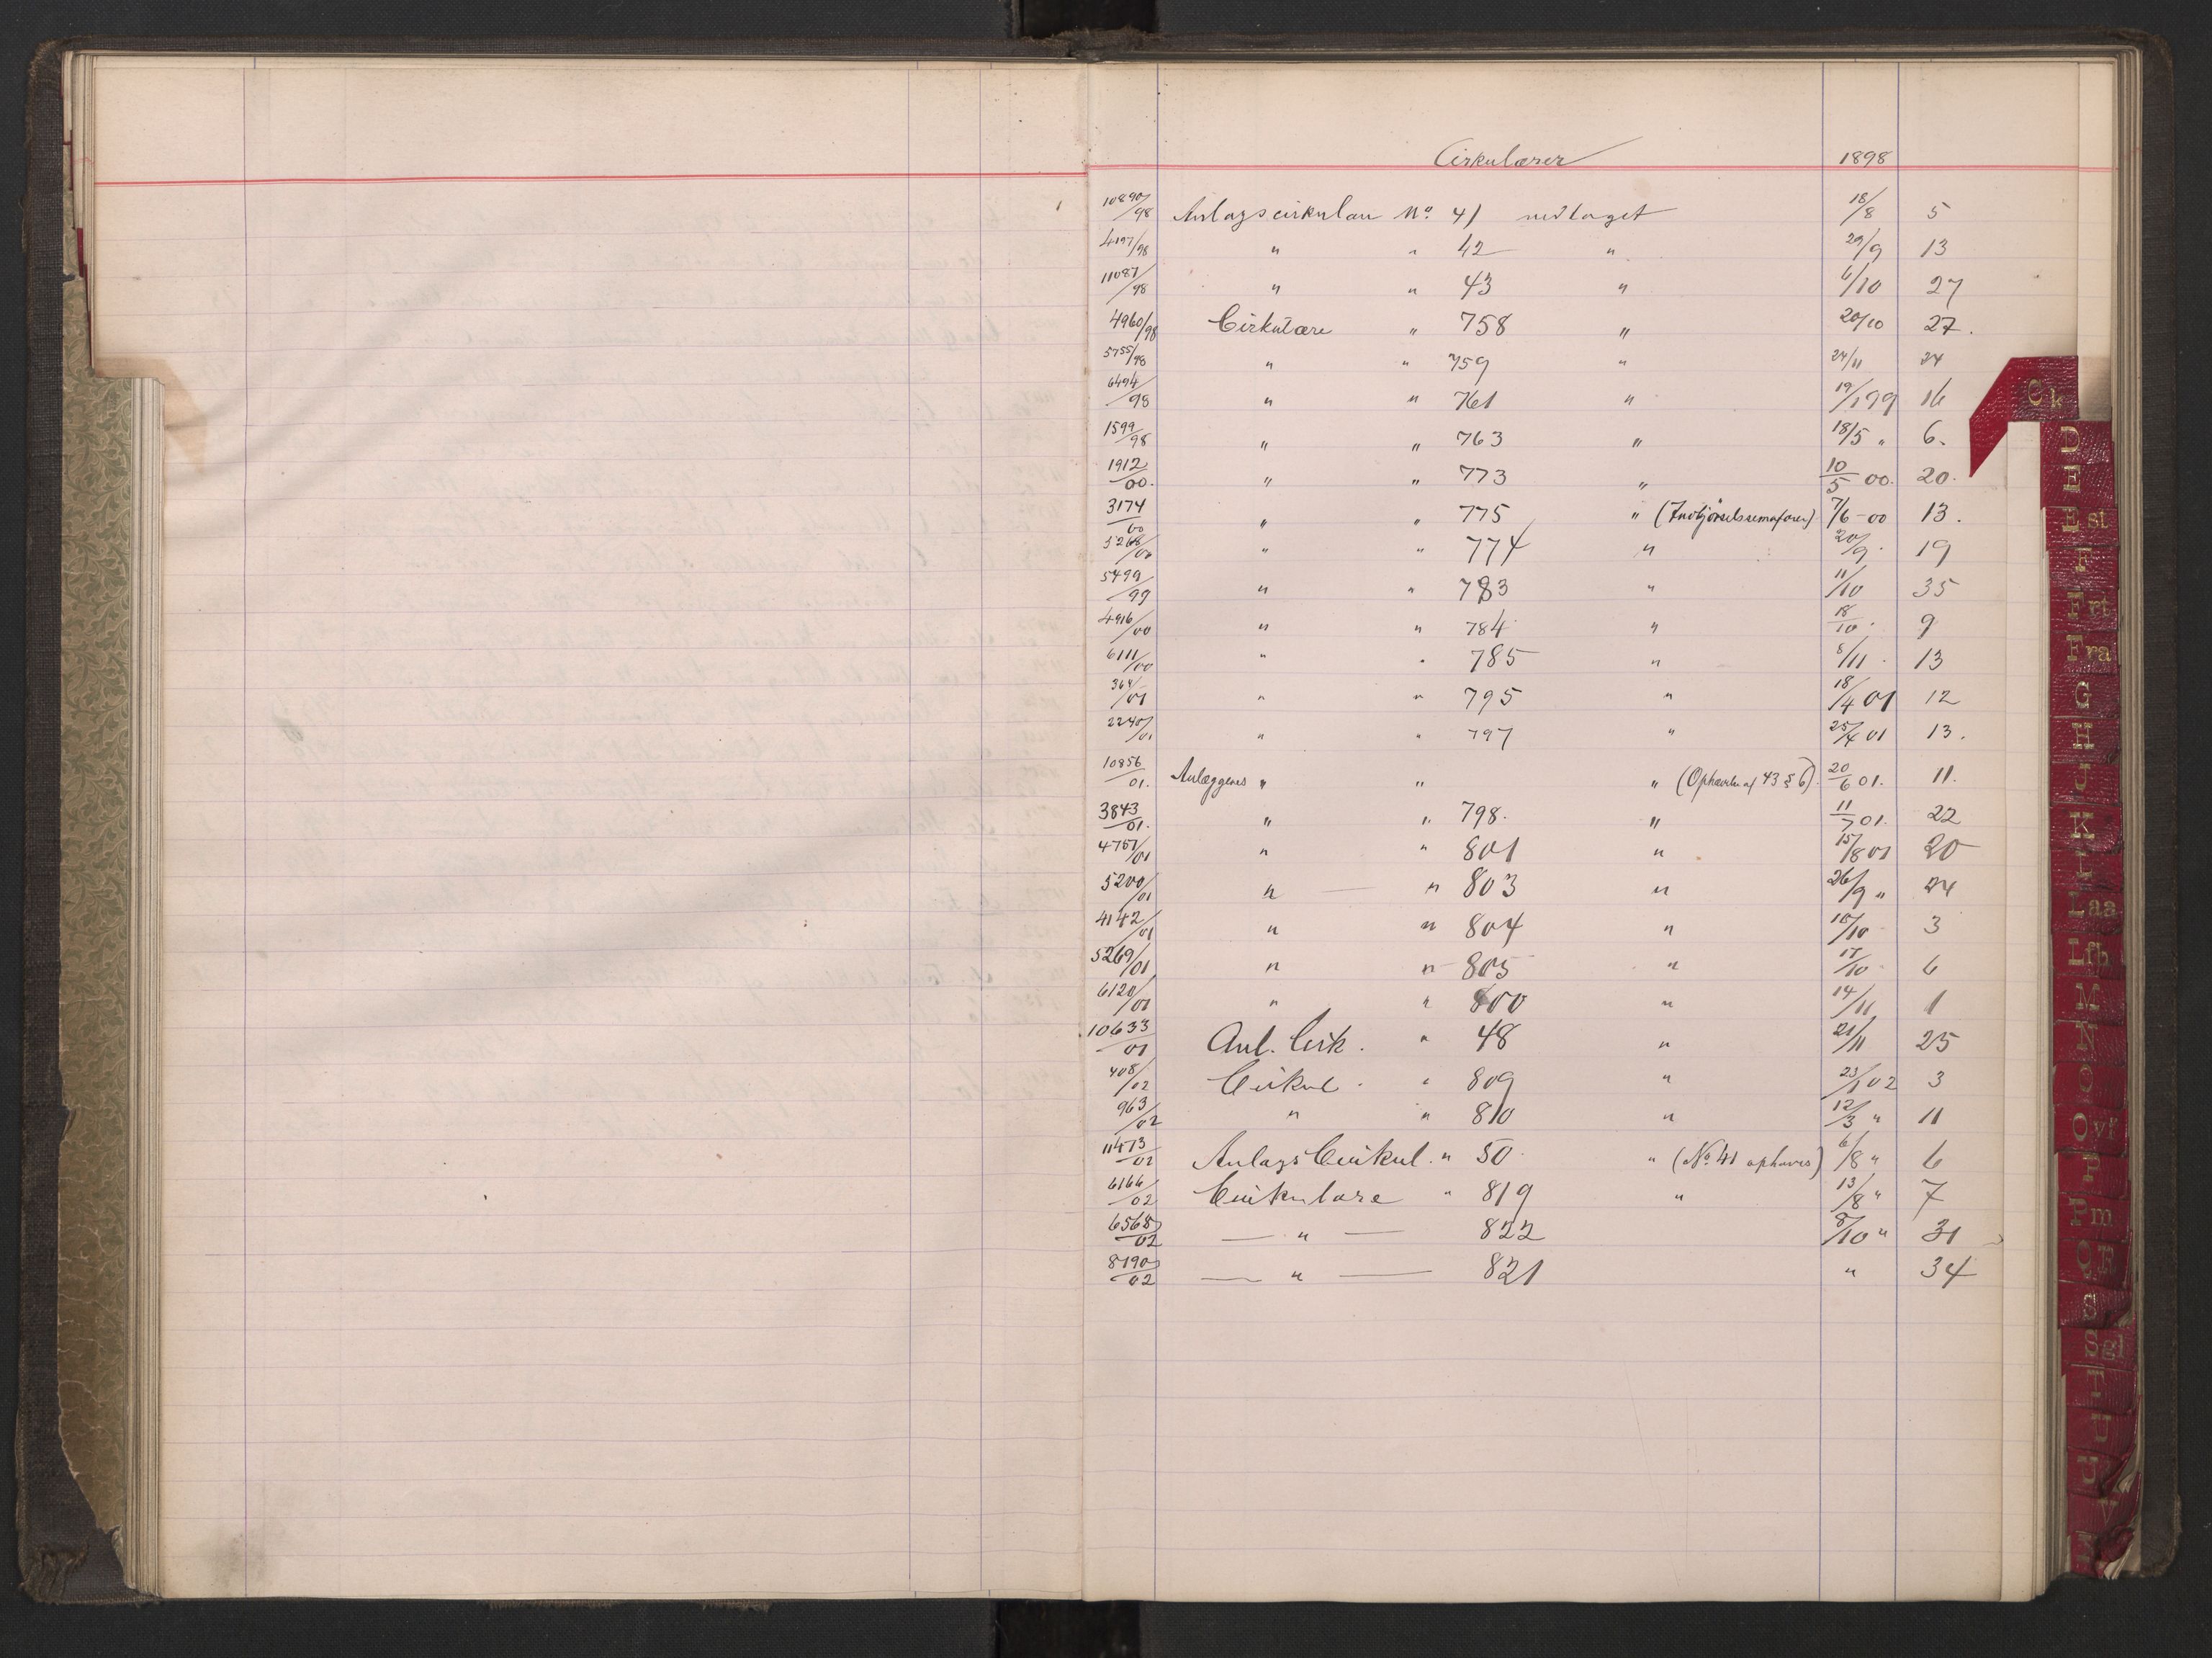 Cirkulærer 1898
10890/98 Anlagscirkulære No. 41 vedtaget 18/8 5
4197/98 " " 42 " 29/9 13
11087/98 " " 43 " 6/10 27
4960/98 Cirkulære " 758 " 20/10 27.
5755/98 " " 759 " 24/11 24
6494/98 " " 761 " 19/1 99 16
1599/98 " " 763 " 18/5 " 6.
1912/00. " " 773 " 10/5 00. 20.
3174/00 " " 775 " (Indkjørselssemaforer) 7/6-00 13.
5268/00 " " 774 " 20/9. 19
5499/99 " " 783 " 11/10 35
4916/00 " " 784 " 18/10. 9
6111/00 " " 785 " 8/11. 13
364/01 " " 795 " 18/4 01 12
2240/01 " " 797 " 25/4 01 13.
10856/01. Anlæggenes " " " (Ophævelse af 43 § 6). 20/6 01. 11.
3843/01. " " 798. " 11/7 01. 22
4751/01 " " 801 " 15/8 01 20
5200/01 " — " 803 " 26/9 " 24
4142/01 " " 804 " 10/10 3
5269/01 " " 805 " 17/10 6
6120/01 " " 800 " 14/11 1
10633/01 Anl. Cirk. " 48 " 21/11 25
408/02 Cirkul. " 809 " 23/1 02 3
963/02 " " 810 " 12/3 " 11
11473/02 Anlags Cirkul. " 50 " (No 41 ophæves) 6/8 " 6
6166/02 Cirkulære " 819 " 13/8 " 7
6568/02 — " — 822 8/10 " 31
8190/02 — " — 821 " 34
Ck
D
E
Est
F
Frt
Fra
G
H
J
K
L
Laa
Lfb
M
N
O
Ovf
P
Pm
R
S
Sgl
T
U
V